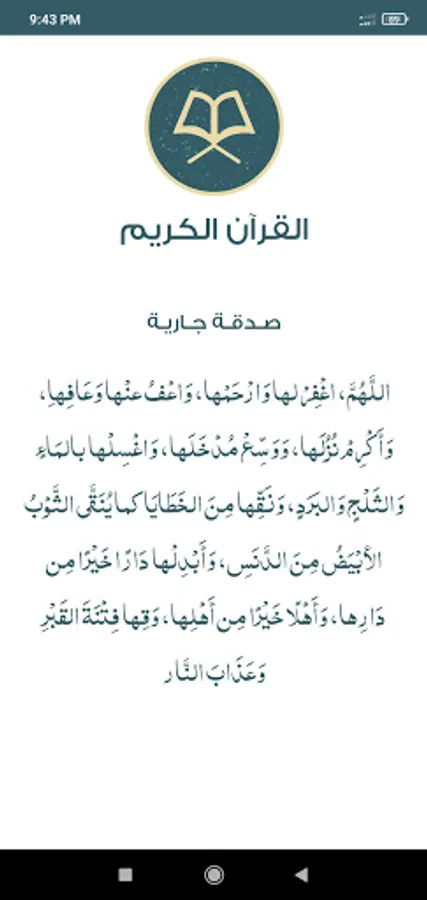 9:43 PM
القرآن الكريم
صدقة جارية
اللَّهُمَّ، اغْفِرْ لها وَارْحَمْها، وَاعْفُ عنْها وَعَافِهِا،
وَأَكْرِمْ نُزُلَها، وَوَسِّعْ مُدْخَلَها، وَاغْسِلْها بالمَاءِ
وَالثَّلْجِ وَالبَرَدِ، وَنَقِّها مِنَ الخَطَايَا كما يُنَقَّى الثَّوْبُ
الأبْيَضُ مِنَ الدَّنَسِ، وَأَبْدِلْها دَارًا خَيْرًا مِن
دَارِها، وَأَهْلًا خَيْرًا مِن أَهْلِها، وَقِها فِتْنَةَ القَبْرِ
وَعَذَابَ النَّار